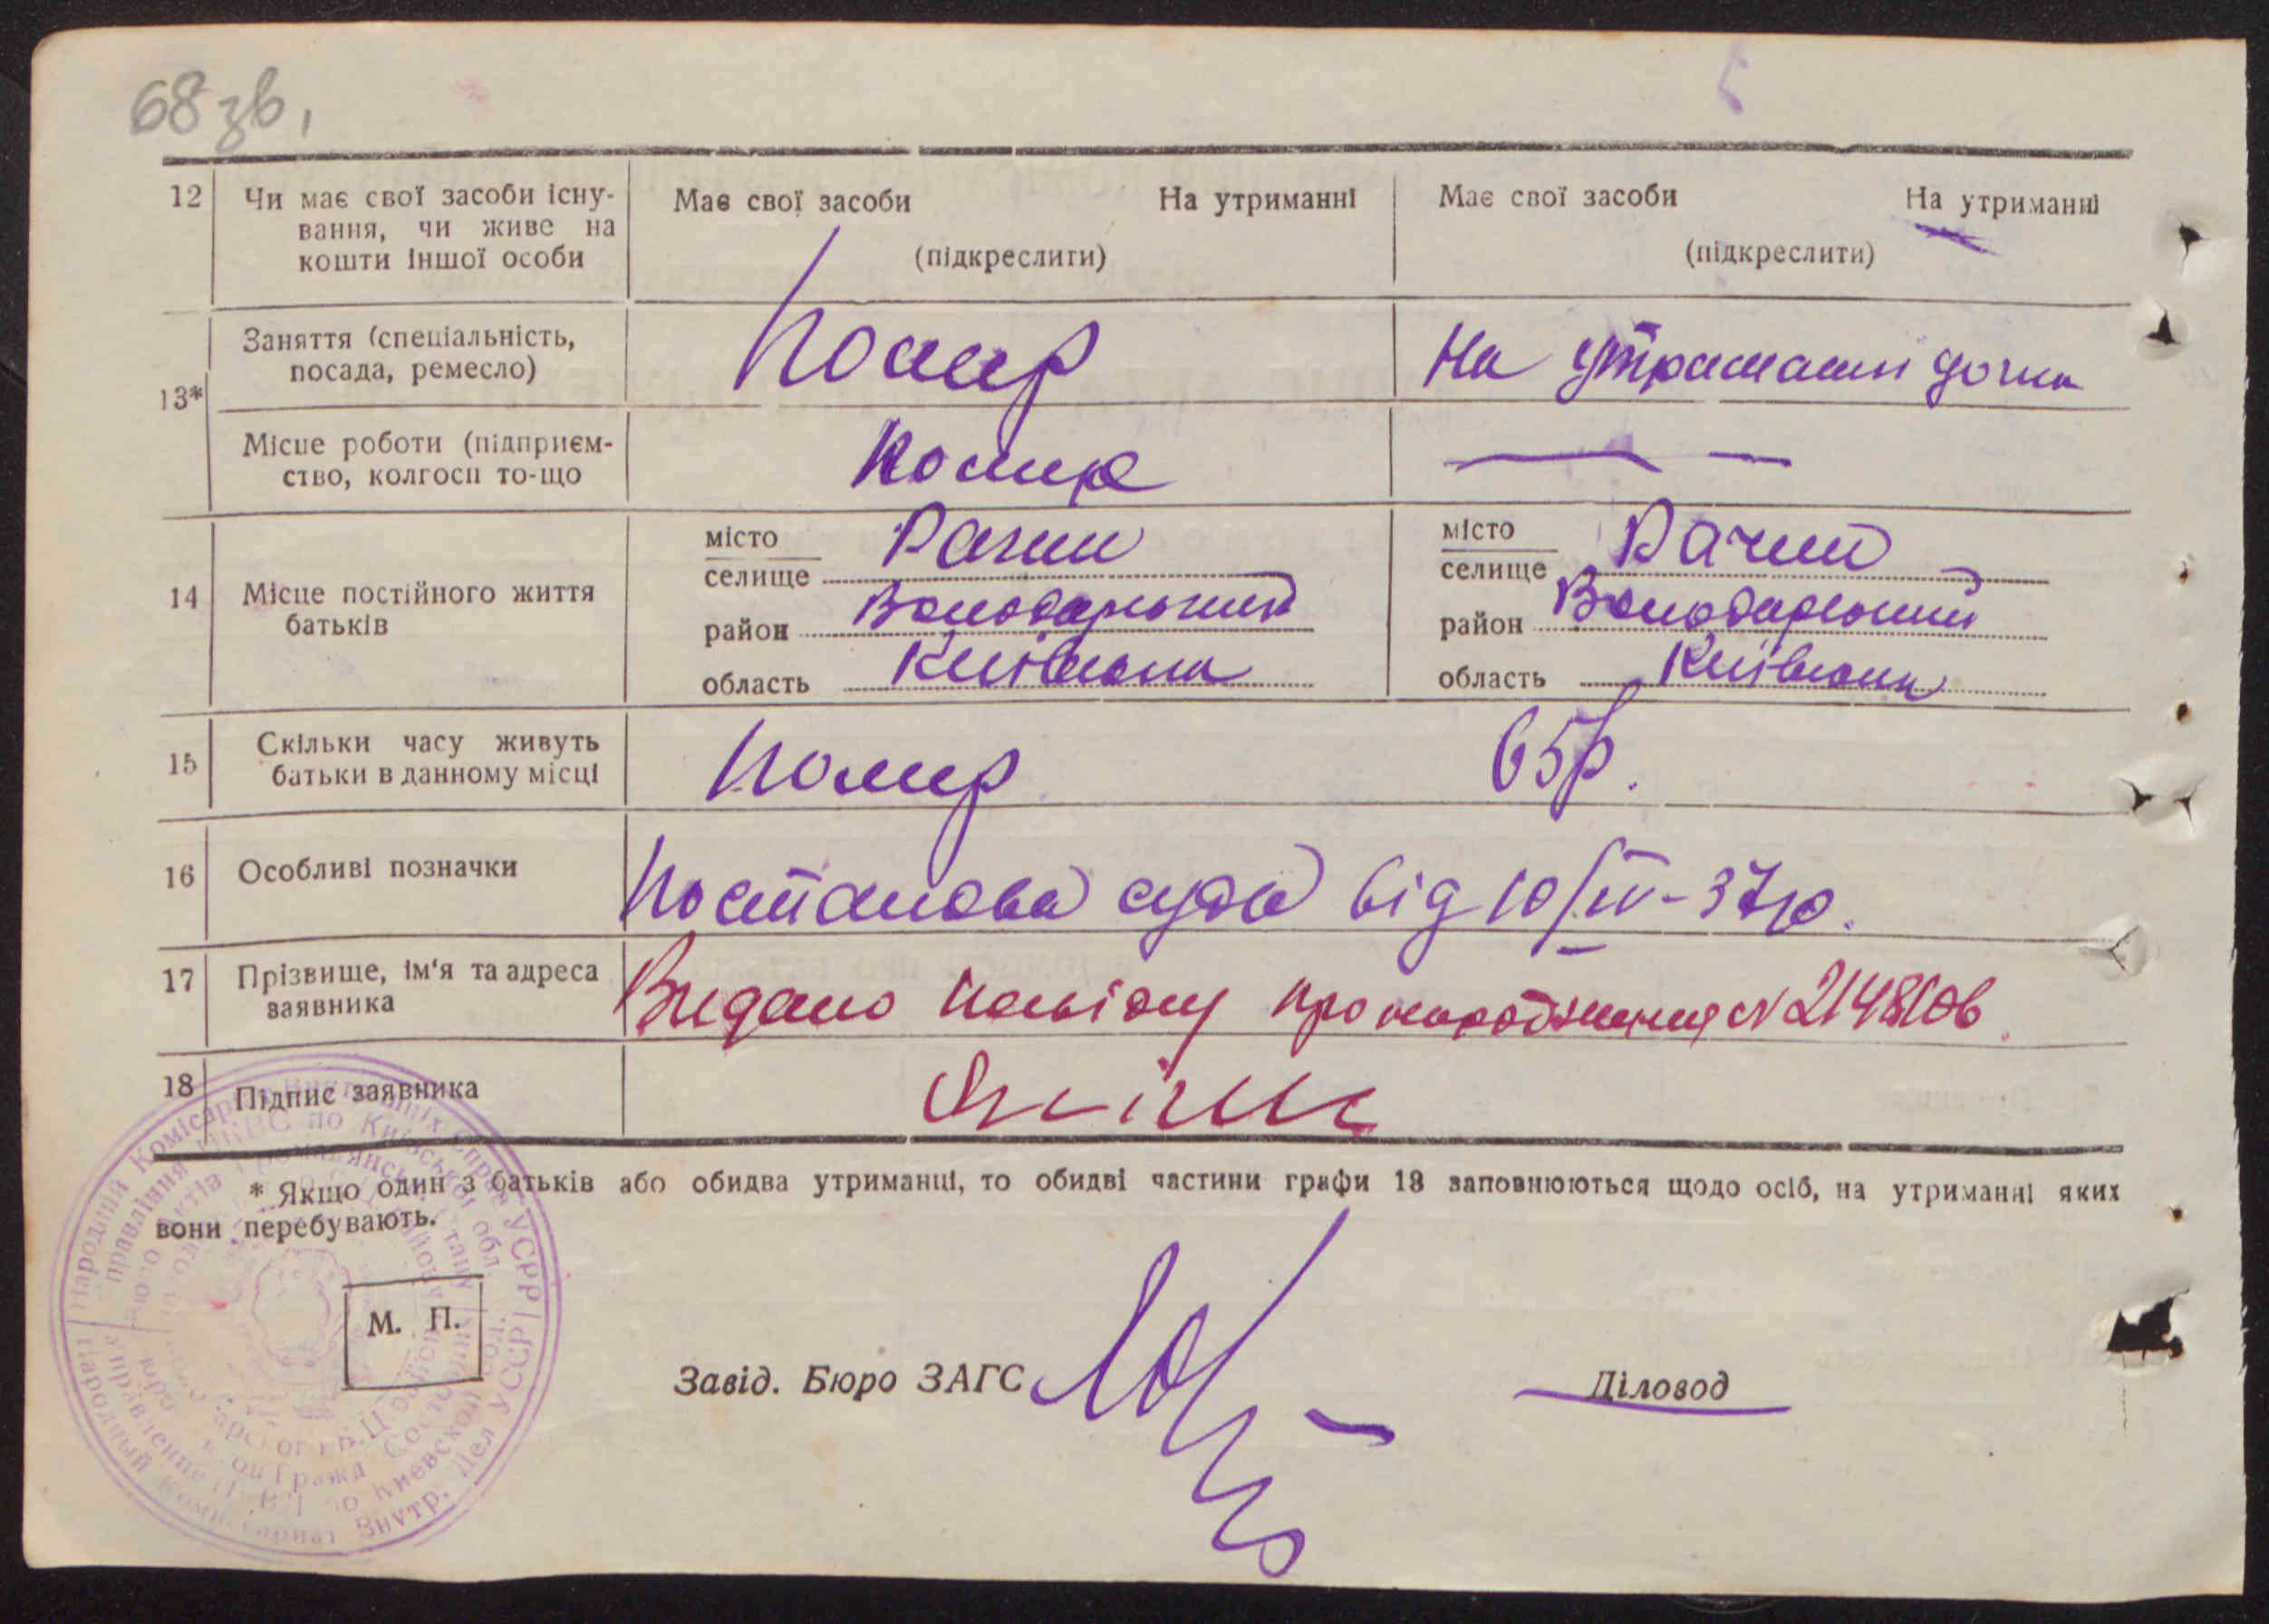 68 зв,
12 Чи має свої засоби існу-
вання, чи живе на
кошти іншої особи
Має свої засоби На утриманні
(підкреслити)
Має свої засоби На утриманні
(підкреслити)
13*
Заняття (спеціальність,
посада, ремесло)
Помер
На утриманні дочки
Місце роботи (підприєм-
ство, колгосп то-що
Помер
— —
14 Місце постійного життя
батьків
місто
селище Рачки
район Володарський
область Київська
місто
селище Рачки
район Володарський
область Київська
15 Скільки часу живуть
батьки в данному місці
Помер
65р.
16 Особливі позначки
Постанова суда від 10/IV-37р.
17 Прізвище, ім'я та адреса
заявника
Видано копію про народження N
18 Підпис заявника
* Якщо один з батьків або обидва утриманці, то обидві частини графи 13 заповнюються щодо осіб, на утриманні яких
вони перебувають.
М. П.
Завід. Бюро ЗАГС
Діловод
Народній Комісаріат Внутрішніх Справ УСРР
Управління НКВС по Київській обл.
Народный Комиссариат Внутр. Дел УССР
Управление НКВД по Киевской обл.